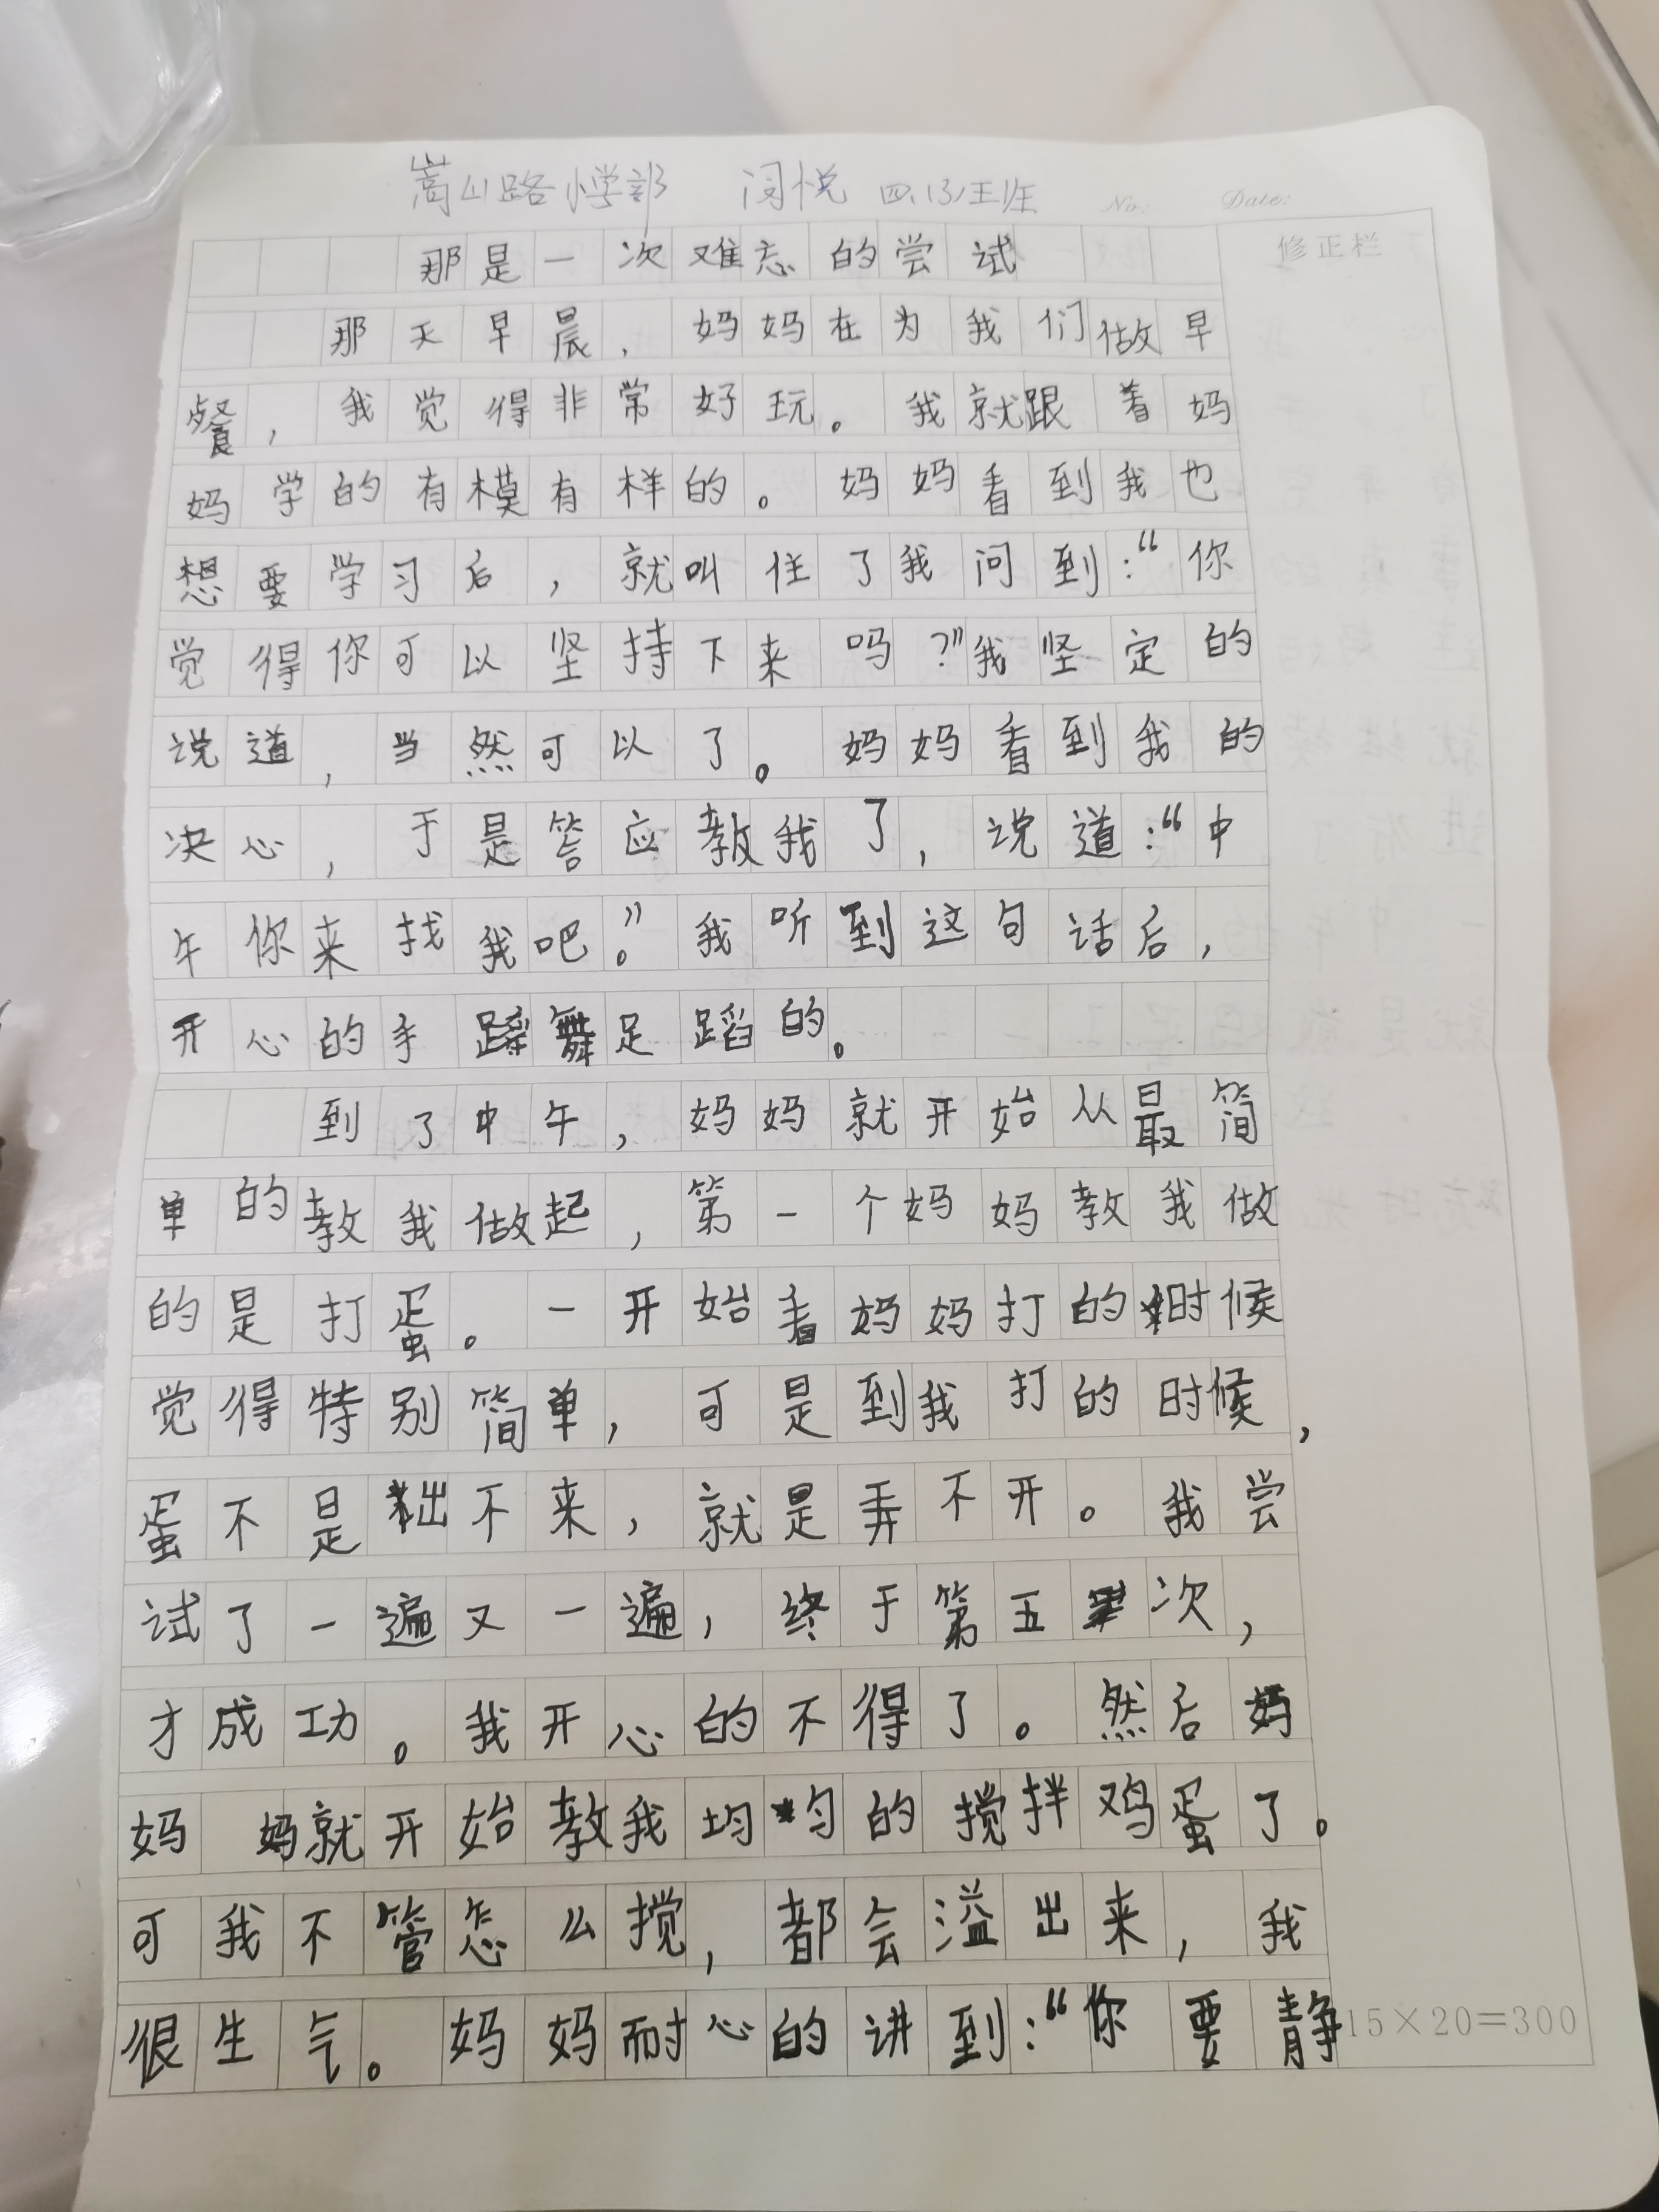 嵩山路小学部 闫悦 四.13班
No: Date:
修正栏
那是一次难忘的尝试
那天早晨，妈妈在为我们做早
餐，我觉得非常好玩。我就跟着妈
妈学的有模有样的。妈妈看到我也
想要学习后，就叫住了我问到：“你
觉得你可以坚持下来吗？”我坚定的
说道，当然可以了。妈妈看到我的
决心，于是答应教我了，说道：“中
午你来找我吧。”我听到这句话后，
开心的手舞足蹈的。
到了中午，妈妈就开始从最简
单的教我做起，第一个妈妈教我做
的是打蛋。一开始看妈妈打的时候
觉得特别简单，可是到我打的时候，
蛋不是出不来，就是弄不开。我尝
试了一遍又一遍，终于第五次，
才成功。我开心的不得了。然后妈
妈 妈就开始教我均匀的搅拌鸡蛋了。
可我不管怎么搅，都会溢出来，我
很生气。妈妈耐心的讲到：“你要静
15×20=300